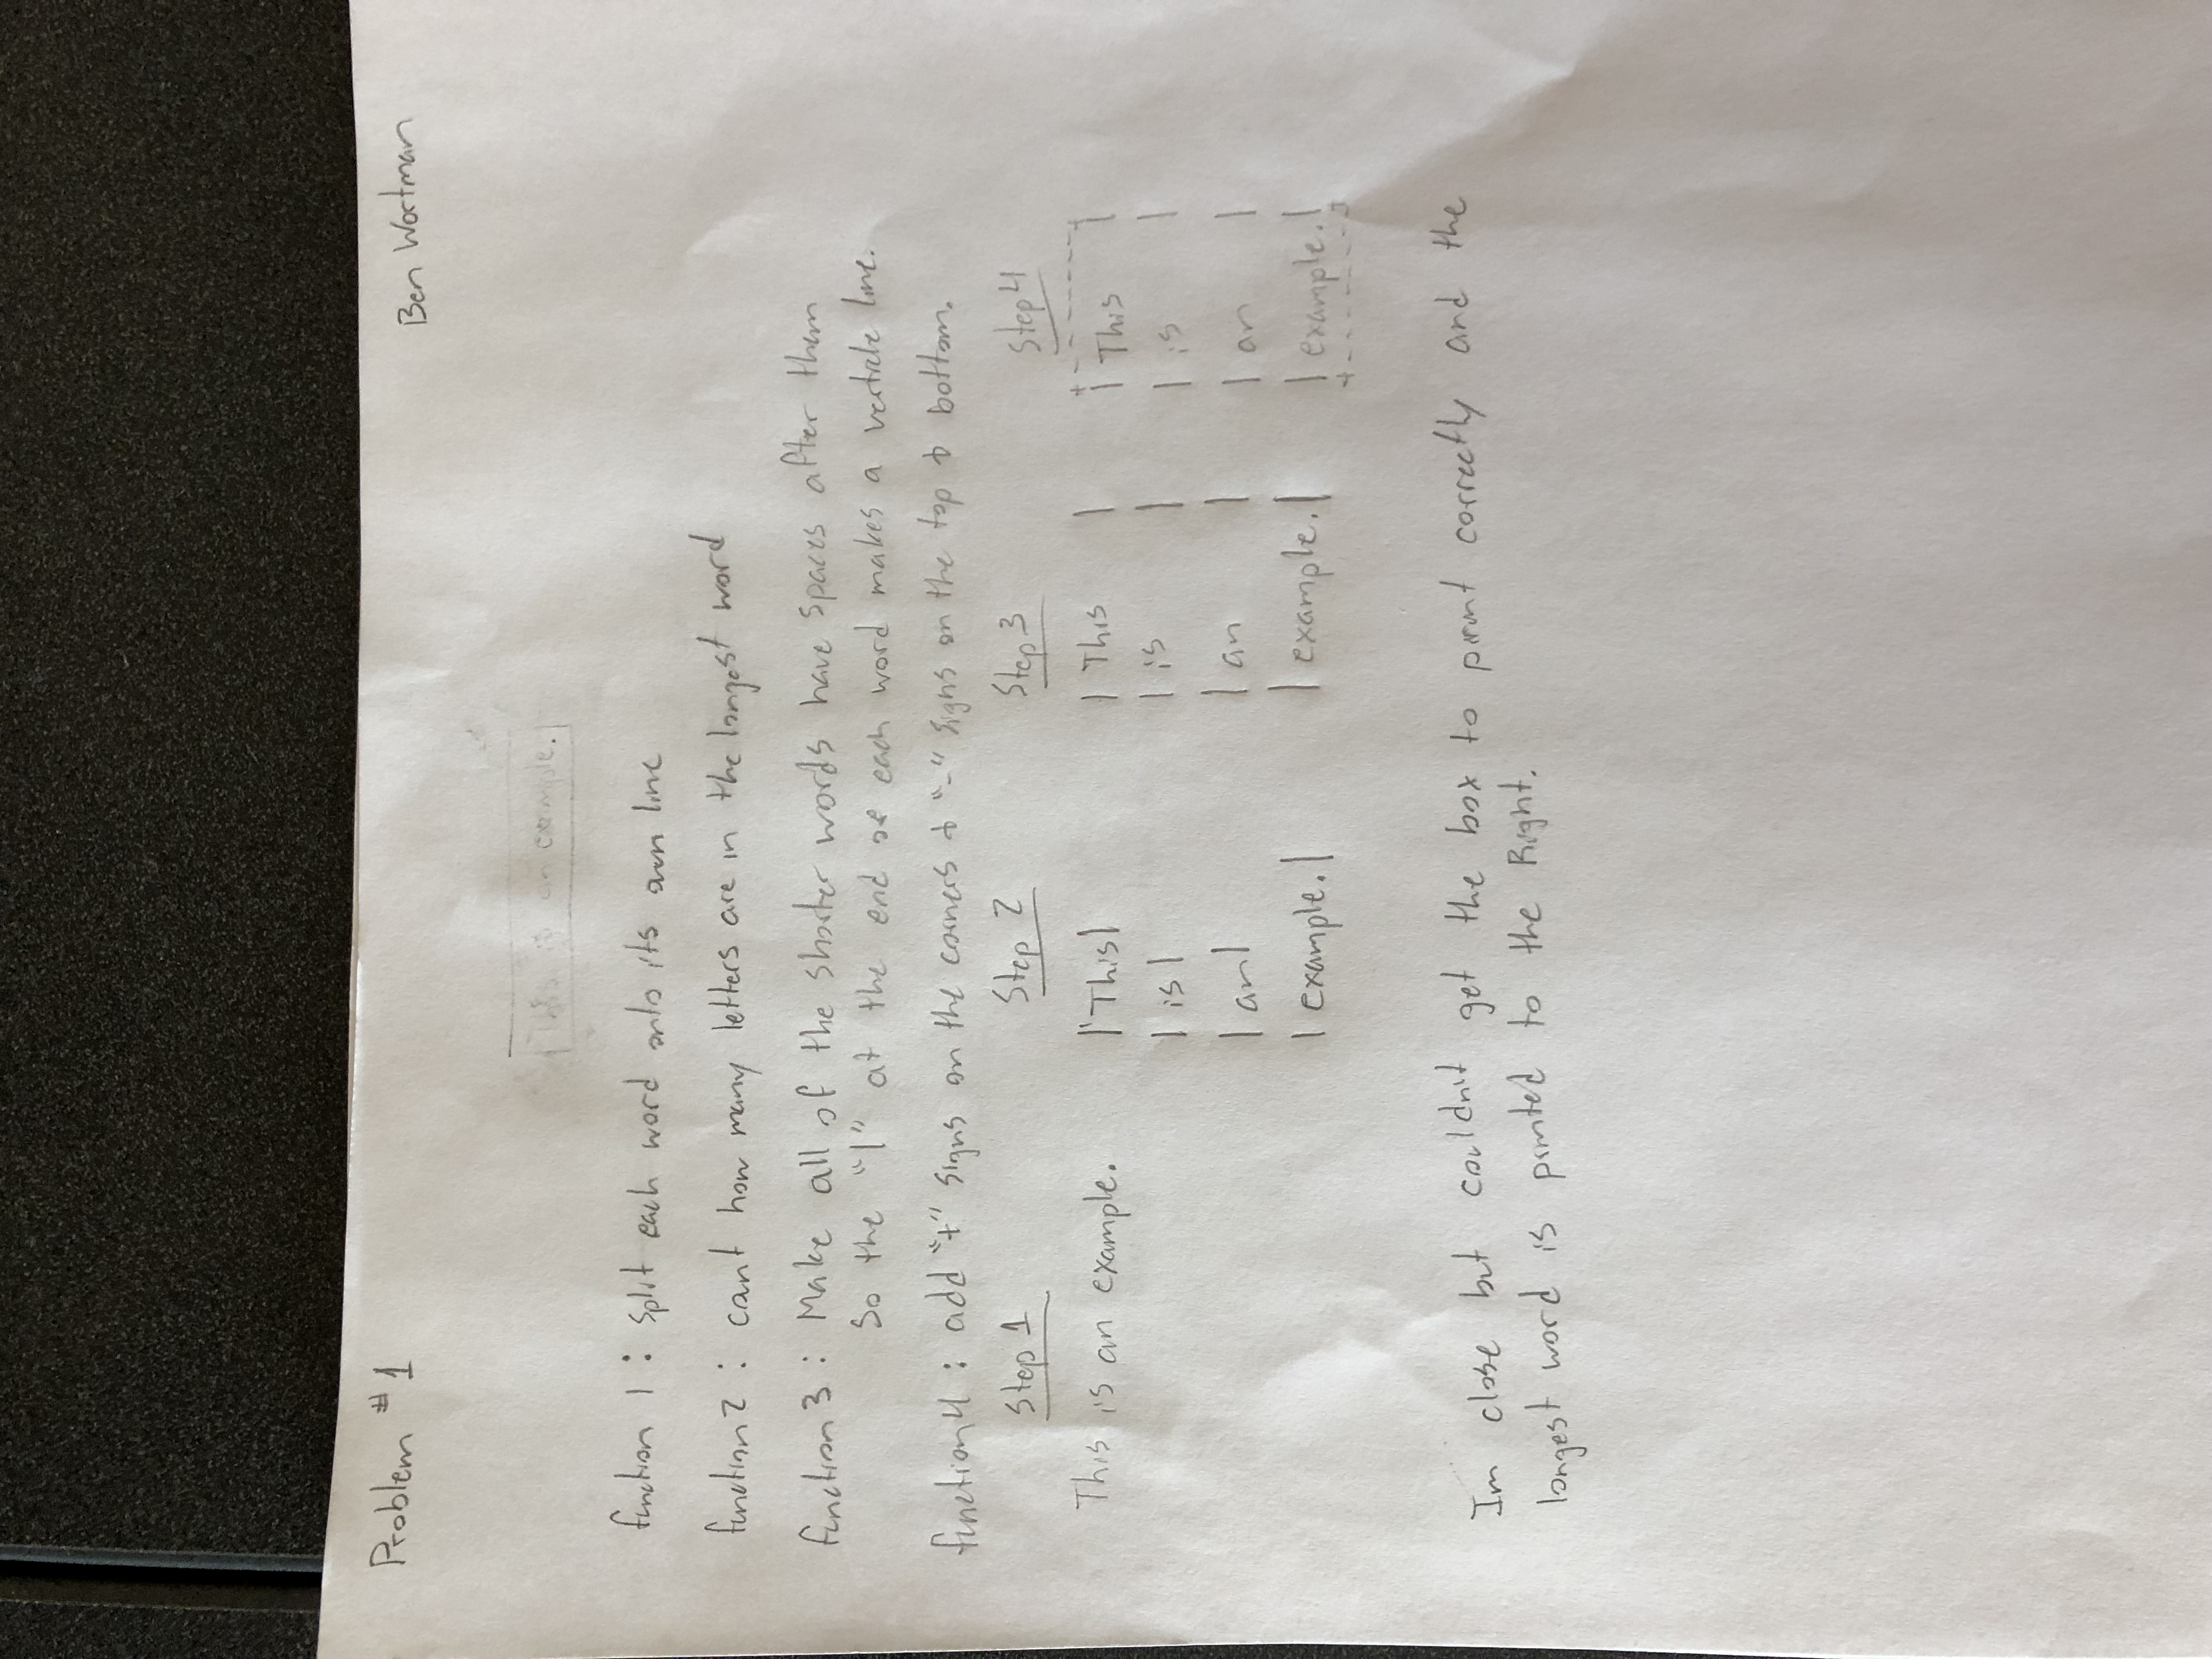 Problem #1
Ben Wortman
This is an example.
function 1 : Split each word onto its own line
function 2 : count how many letters are in the longest word
function 3 : Make all of the shorter words have spaces after them
So the "|" at the end of each word makes a verticle line.
function 4 : add "+" signs on the corners & "-" signs on the top & bottom.
Step 1 Step 2 Step 3 Step 4
+--------+
This is an example. |This| | This | | This |
| is | | is | | is |
| an| | an | | an |
| example.| | example.| | example.|
+--------+
Im close but couldn't get the box to print correctly and the
longest word is printed to the Right.